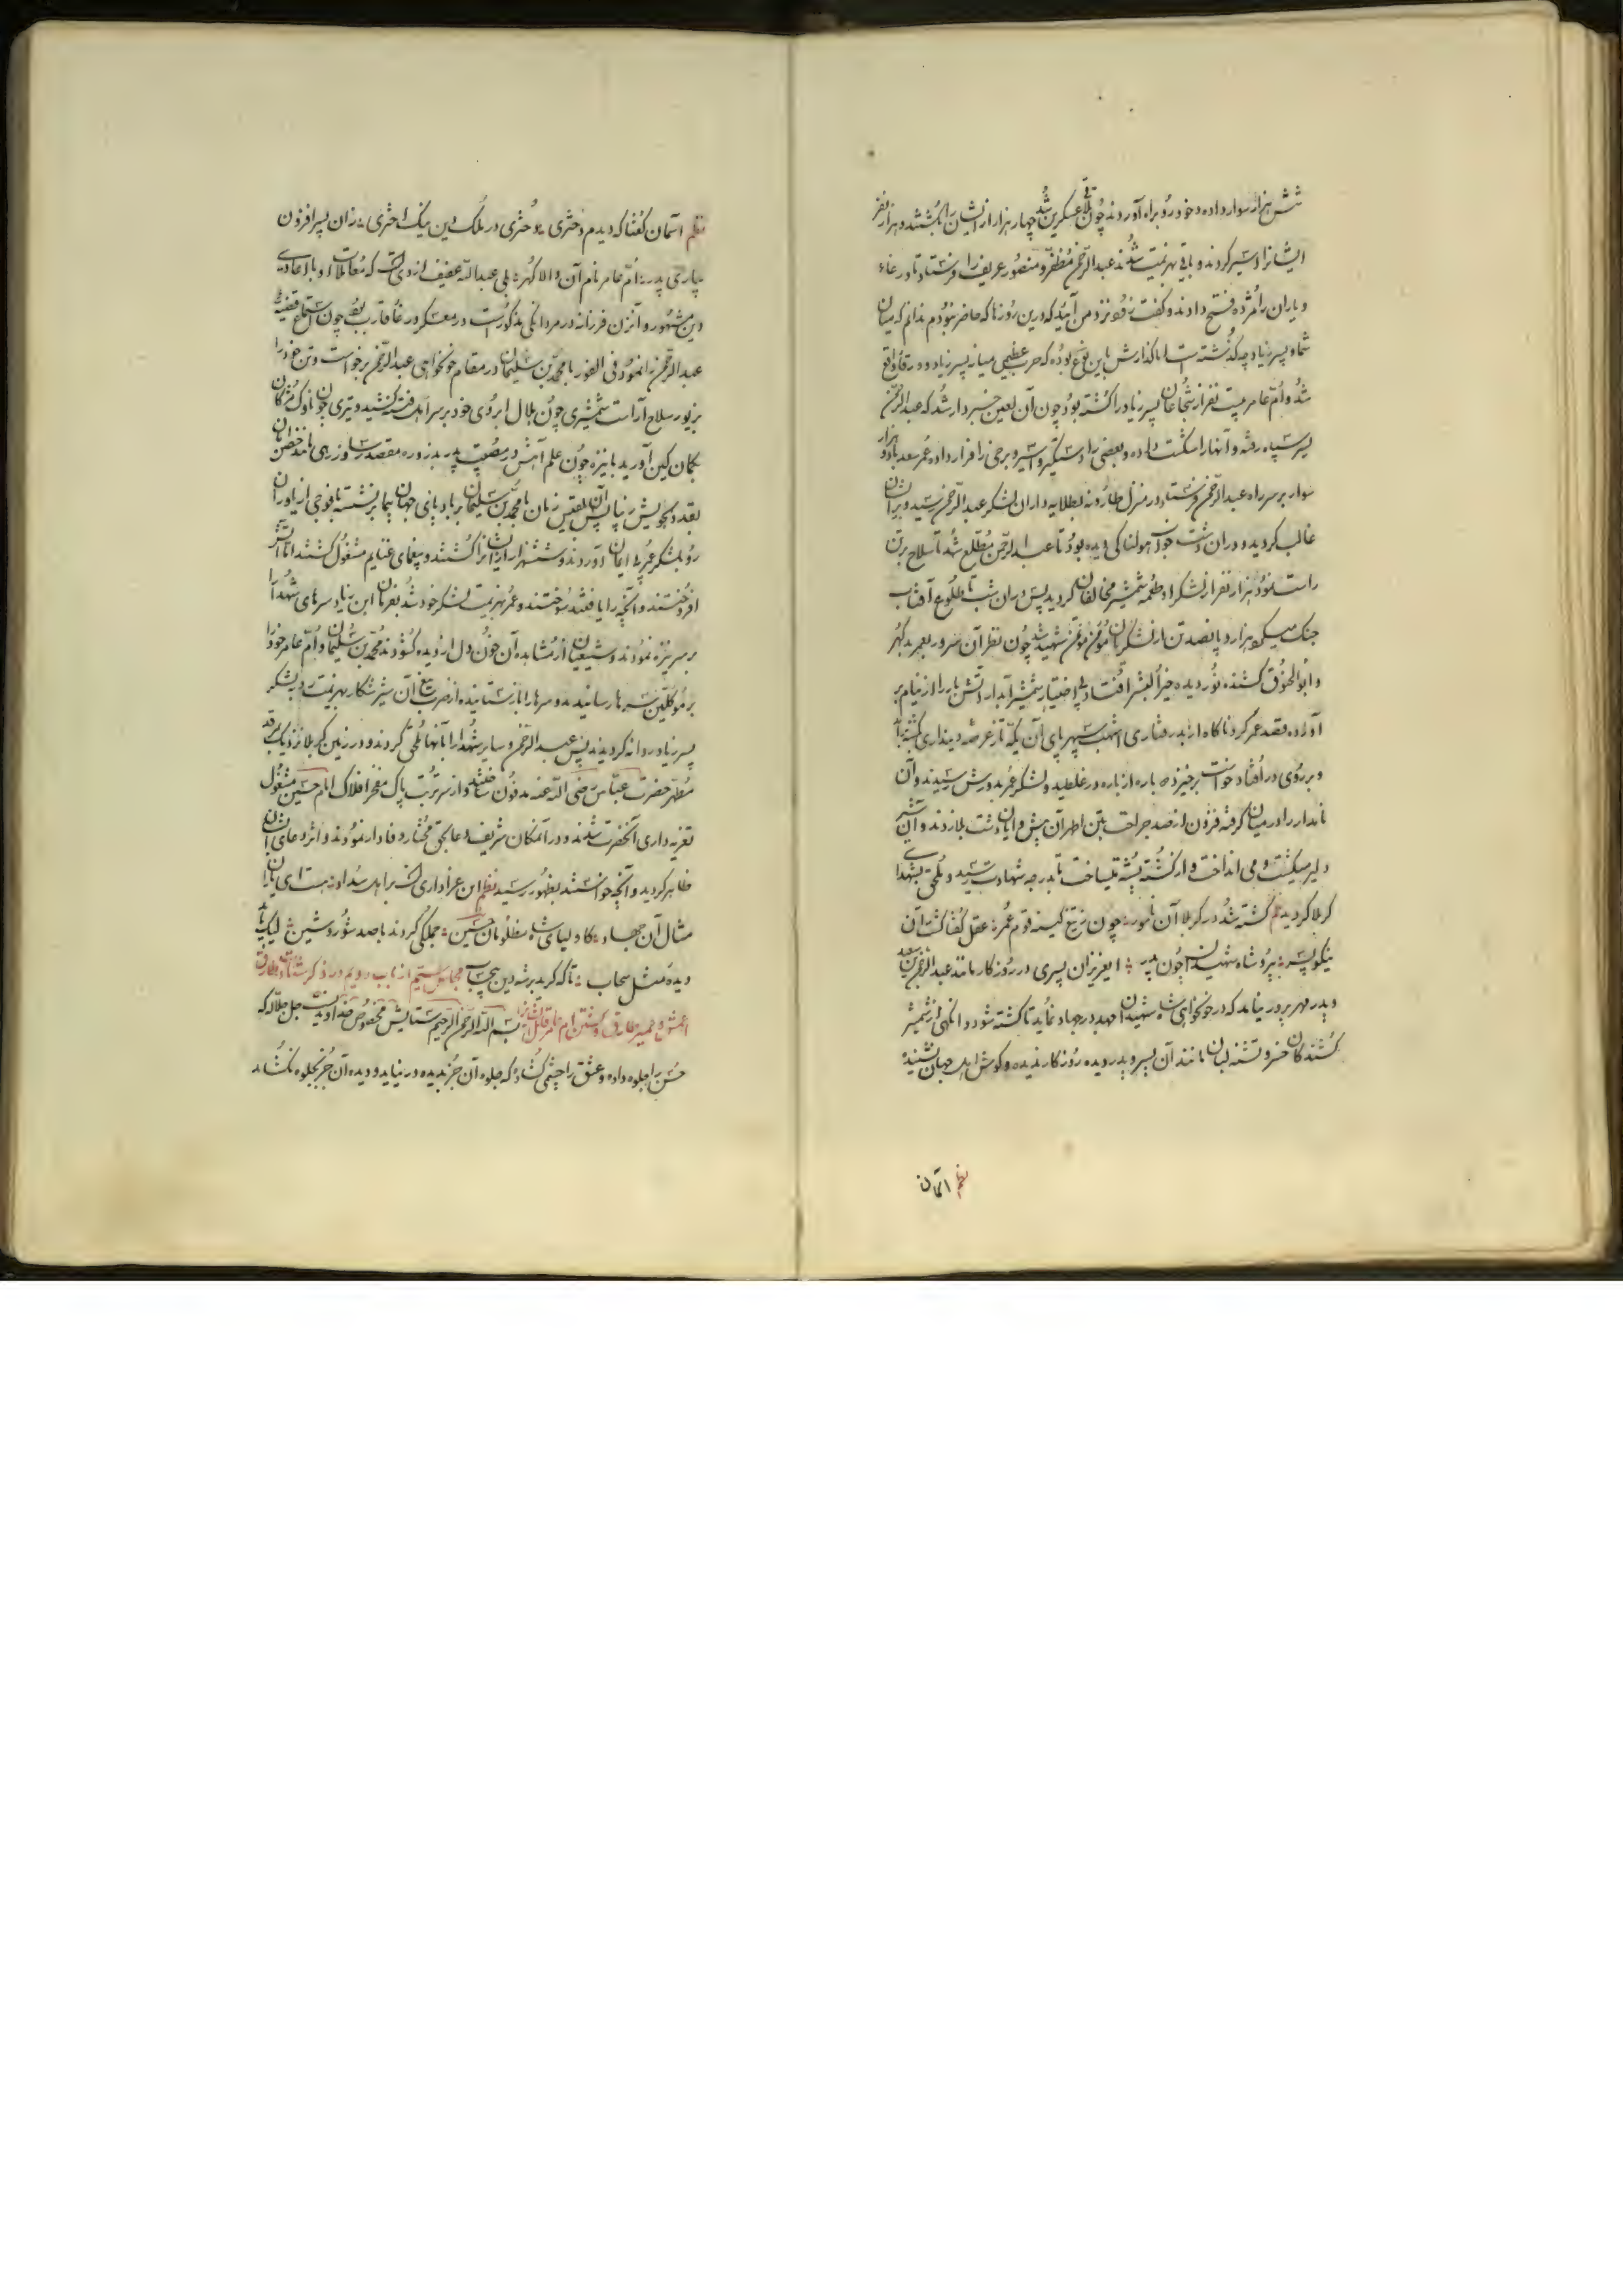 شش هزار سوار داده و خود رو براه آوردند چون تلاقی عسکرین شد چهار هزار از ایشان را بکشتند و هزار نفر
ایشانرا دستگیر کردند و باقی بهزیمت شدند عبدالرحمن مظفر و منصور عریف را فرستاد تا در غاء
و یاران را مژده فتح دادند و گفت رفقو نزد من آیید که درین روزها که حاضر نبودم ندانم که میان
شما و پسر زیاد چه گذشته است اما گذارش باین نوع بوده که حرب عظیمی میانه پسر زیاد و ورقا واقع
شد و ام عامر بیست نفر از شجاعان پسر زیاد را کشته بود چون آن لعین خبردار شد که عبدالرحمن
بر سپاه زده و آنها را شکست داده و بعضی را دستگیر و اسیر و برخی را فرار داده عمر سعد با دو هزار
سوار بر سر راه عبدالرحمن فرستاد در منزل بطلایه داران لشکر عبدالرحمن رسید و برایشان
غالب گردید و دران دشت خواب هولناکی دیده بود تا عبدالرحمن مطلع شد تا سلاح بر تن
راست نمود هزار نفر از لشکر او طعمه شمشیر مخالفان گردید پس دران شب تا طلوع آفتاب
جنگ میکرد هزار و پانصد تن از لشکریان مؤمن موقن شهید شد چون نظر آن سرور بعمر بد گهر
و ابوالحنوق کشنده نور دیده خیر البشر افتاد بی اختیار شمشیر آبدار آتش بار را از نیام بر
آورده قصد عمر کرد ناگاه از بد رفتاری اشهب سپهر پای آن یکه تاز عرصه دینداری
و بر روی در افتاد خواست برخیزد باره از باره در غلطید و لشکر عمر بدورش رسیدند و آن
نامدار را در میان گرفته فزون از صد جراحت بتن اطهر آن دشت بلا زدند و آن شیر
دلیر میکشت و می انداخت و از کشته پشته میساخت تا بدرجه شهادت رسید و ملحق بشهدای
کربلا گردید نظم کشته شد در کربلا آن نامور چون ز تیغ کینه قوم عمر عقل گفتا کشت آن
نیکو پسر پیرو شاه شهیدان چون پدر ای عزیزان پسری در روزگار مانند عبدالرحمن بن سعد
و پدر مهر پرور نیامد که در خونخواهی شاه شهیدان جهد در جهاد نماید تا کشته شود و انگهی از شمشیر
کشندگان خسرو تشنه لبان مانند آن پسر و پدر دیده روزگار ندیده و گوش اهل جهان نشنیده
نظم اسمان
نظم آسمان گفتا که دیدم دختری دختری در ملک دین نیک اختری زان پسر افزون
بیاری پدر ام عامر نام آن والا گهر بلی عبدالله عفیف ازدی است که مقاتلات او با اعادی
دین مشهور و آنزن فرزانه در مردانگی مذکور است در معسکر ورغاء قارب بود چون استماع قضیه
عبدالرحمن را نمود فی الفور با محمد بن سلیمان در مقام خونخواهی عبدالرحمن برخواست و تن خود را
بزیور سلاح آراست شمشیری چون هلال ابروی خود بر سر اهل فتنه کشید و تیری چون ناوک مژگان
بکمان کین آورید با نیزه چون علم آهش در مصیبت پدر
رو بلشکر عمر بی ایمان آوردند و شش هزار از ایشانرا کشتند و بیغمای غنایم مشغول گشتند اما آتش
افروختند و آنچه را یافتند سوختند و عمر بهزیمت لشکر خود شد بفرمان ابن زیاد سرهای شهدا را
بر سر نیزه نمودند و شیعیان از مشاهده آن خون دل از دیده گشودند محمد بن سلیمان و ام عامر خود را
بر موکلین سرها رسانیدند و سرها را باز ستانیده از ضرب تیغ آن شیر شکار بهزیمت رو به لشکر
پسر زیاد روانه گردیدند پس عبدالرحمن و سایر شهدا را بآنها ملحق کردند و در زمین کربلا نزدیک مرقد
مطهر حضرت عباس رضی الله عنه مدفون ساختند و از سر تربت پاک مفخر افلاک امام حسین مشغول
تعزیه داری آنحضرت شدند و در آنمکان شریف دعا بجهة مختار وفادار نمودند و اثر دعای ایشان
ظاهر گردید و آنچه خواستند بظهور رسید نظم این عزاداری است بر اهل سداد
مثال آن جهاد کاولیای شاه مظلومان حسین جملگی کردند با صد شور و شین لیک باید
دیده مثل سحاب تا که گرید بر شه دین بیحساب مجلس بیستم از باب دویم در ذکر
بسم الله الرحمن الرحیم ستایش مخصوص خداوندیست جل جلاله که
حسن را جلوه داده و عشق را چشمی گشاده که جلوه آن جز بدیده در نیاید و دیده آن جز بجلوه نگشاید